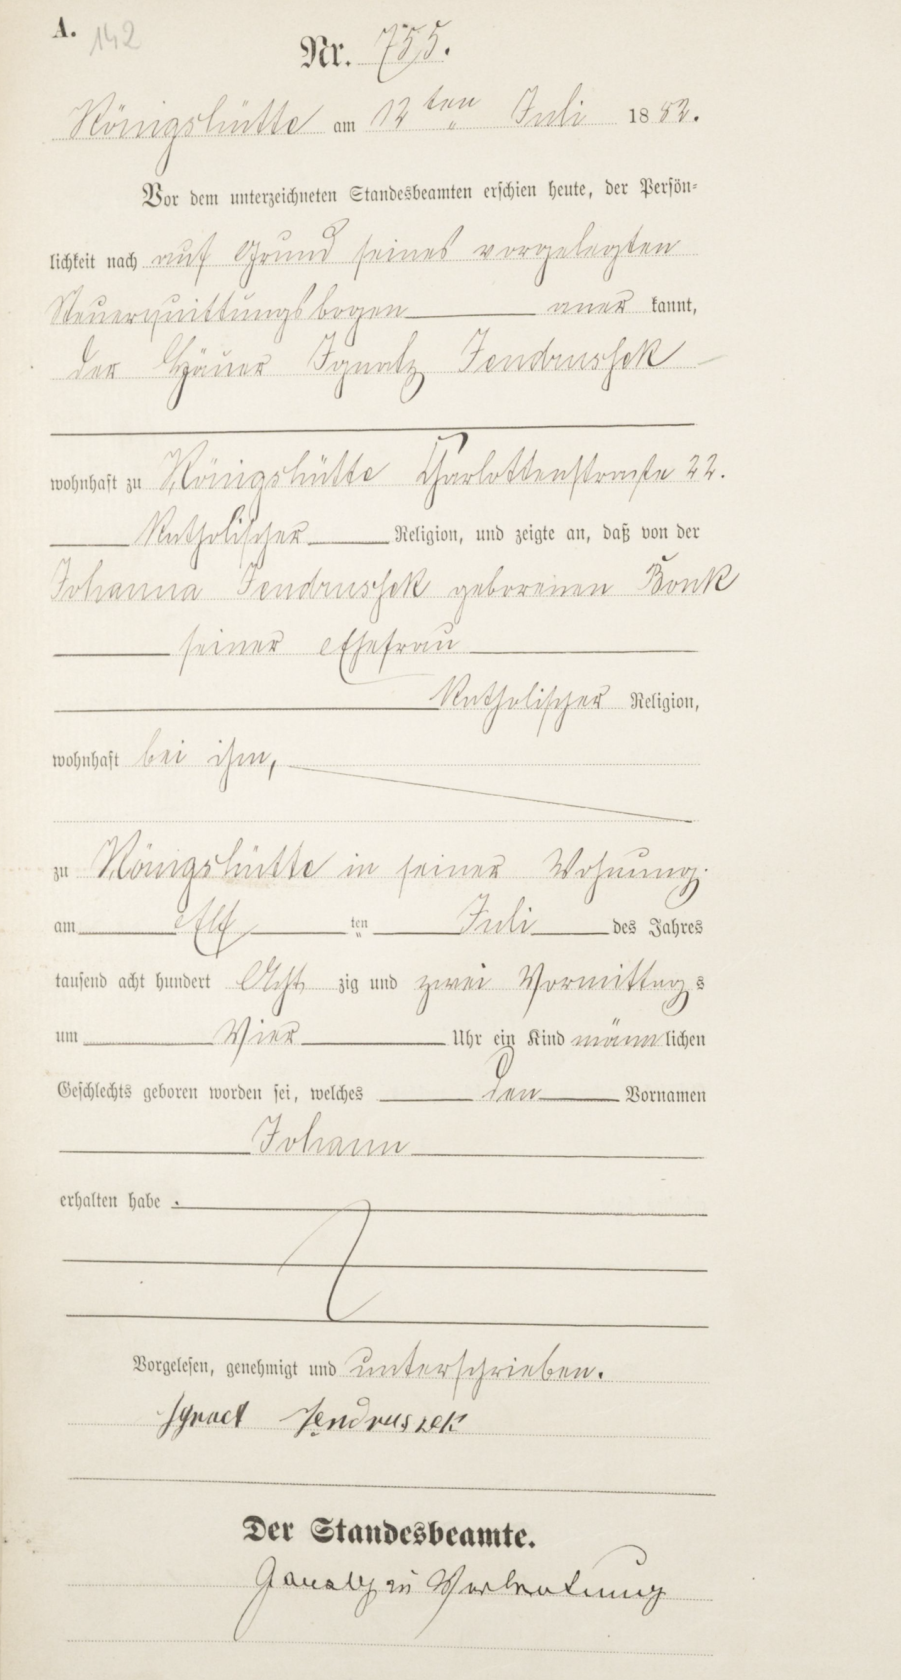 A. 142
Nr. 755.
Königshütte am 12ten Juli 1882.
Vor dem unterzeichneten Standesbeamten erschien heute, der Persön-
lichkeit nach auf Grund seines vorgelegten
Steuerquittungsbogen aner kannt,
der Häuer Ignatz Jendrussek
wohnhaft zu Königshütte Charlottenstraße 22.
Katholischer Religion, und zeigte an, daß von der
Johanna Jendrussek geborenen Bonk
seiner Ehefrau
Katholischer Religion,
wohnhaft bei ihm,
zu Königshütte in seiner Wohnung
am Elf ten Juli des Jahres
tausend acht hundert Acht zig und zwei Vormittag s
um Vier Uhr ein Kind männ lichen
Geschlechts geboren worden sei, welches den Vornamen
Johann
erhalten habe.
Vorgelesen, genehmigt und unterschrieben.
Jendruszek
Der Standesbeamte.
in Vertretung